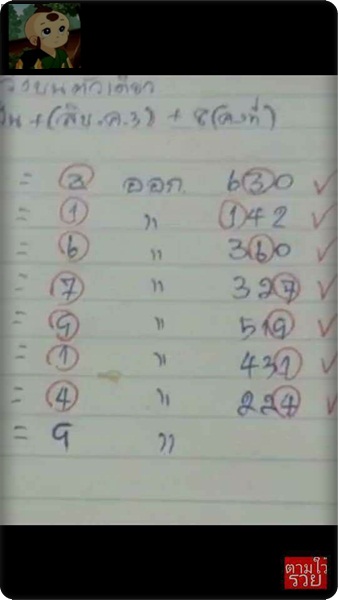 วิ่งบนตัวเดียว
+(สิบ.ค.3) + 8(คงที่)
= 3 ออก. 630 ✓
= 1 " 142 ✓
= 6 " 360 ✓
= 7 " 327 ✓
= 9 " 519 ✓
= 1 " 431 ✓
= 4 " 224 ✓
= 9 "
ตามไว้
รวย